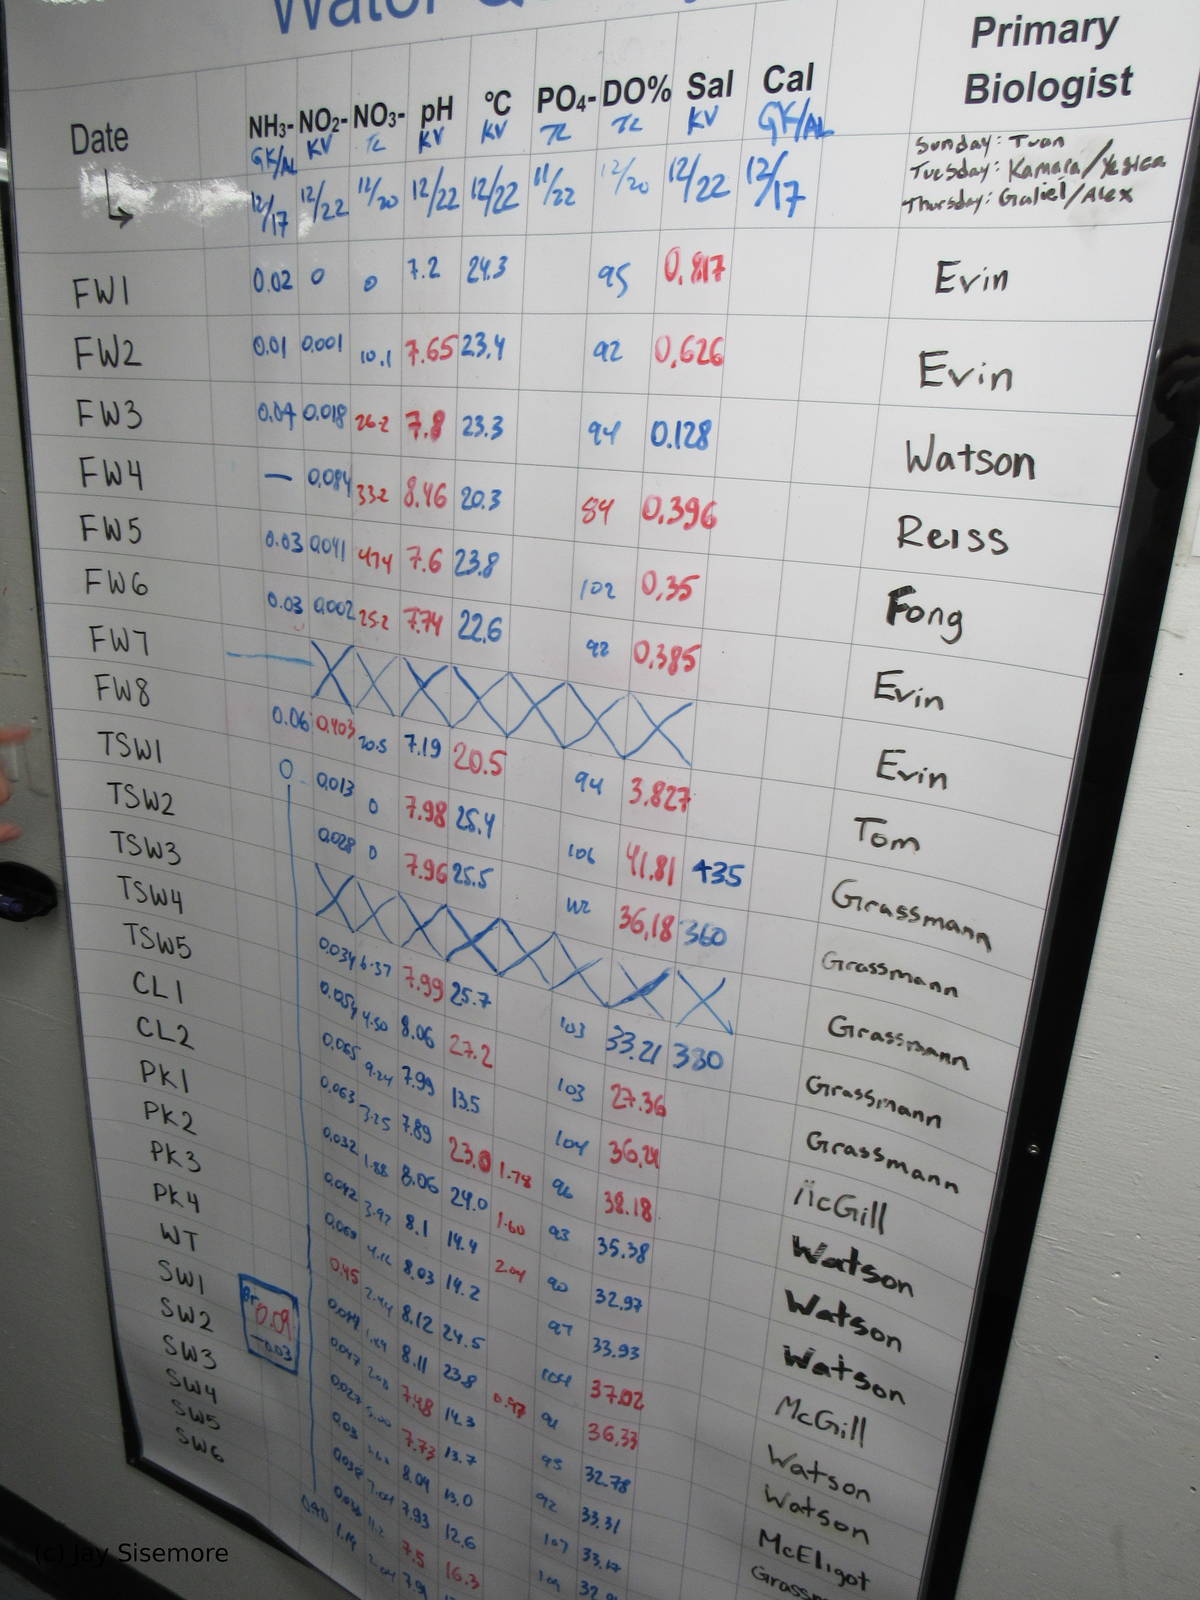 Water
Primary
Biologist
Date NH₃- NO₂- NO₃- pH °C PO₄- DO% Sal Cal
GK/AL KV TL KV KV TL TL KV GK/AL
12/17 12/22 11/20 12/22 12/22 11/22 12/20 12/22 12/17
Sunday: Tuan
Tuesday: Kamara/Yesica
Thursday: Galiel/Alex
FW1 0.02 0 0 7.2 24.3 95 0.817 Evin
FW2 0.01 0.001 10.1 7.65 23.4 92 0.626 Evin
FW3 0.04 0.018 26.2 7.8 23.3 94 0.128 Watson
FW4 — 0.084 33.2 8.46 20.3 84 0.396 Reiss
FW5 0.03 0.041 47.4 7.6 23.8 102 0.35 Fong
FW6 0.03 0.002 25.2 7.74 22.6 92 0.385 Evin
FW7 Evin
FW8 0.06 0.403 20.5 7.19 20.5 94 3.827 Tom
TSW1 0 0.013 0 7.98 25.4 106 41.81 435 Grassmann
TSW2 0.028 0 7.96 25.5 36.18 360 Grassmann
TSW3 Grassmann
TSW4 0.034 6.37 7.99 25.7 103 33.21 380 Grassmann
TSW5 0.054 4.50 8.06 27.2 103 27.36 Grassmann
CL1 0.065 9.24 7.99 13.5 104 36.21 McGill
CL2 0.063 3.25 7.89 23.0 1.78 96 38.18 Watson
PK1 0.032 1.88 8.06 24.0 1.60 93 35.38 Watson
PK2 0.042 3.92 8.1 14.4 2.04 90 32.97 Watson
PK3 0.069 8.03 14.2 97 33.93 McGill
PK4 0.45 8.12 24.5 104 37.02 Watson
WT 8.11 23.8 0.97 91 36.33 Watson
SW1 0.047 7.48 14.3 95 32.78 McEligot
SW2 Br 0.09 T0.03 7.73 13.7 92 33.31
SW3 0.03 8.04 13.0 107 33.17
SW4 0.038 7.93 12.6
SW5 7.5 16.3
SW6
(c) Jay Sisemore